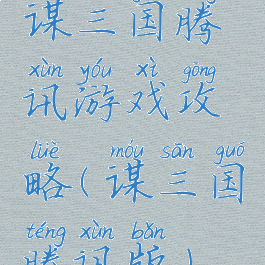 谋三国腾
xùn yóu xì gōng
讯游戏攻
lüè móu sān guó
略(谋三国
téng xùn bǎn
腾讯版)